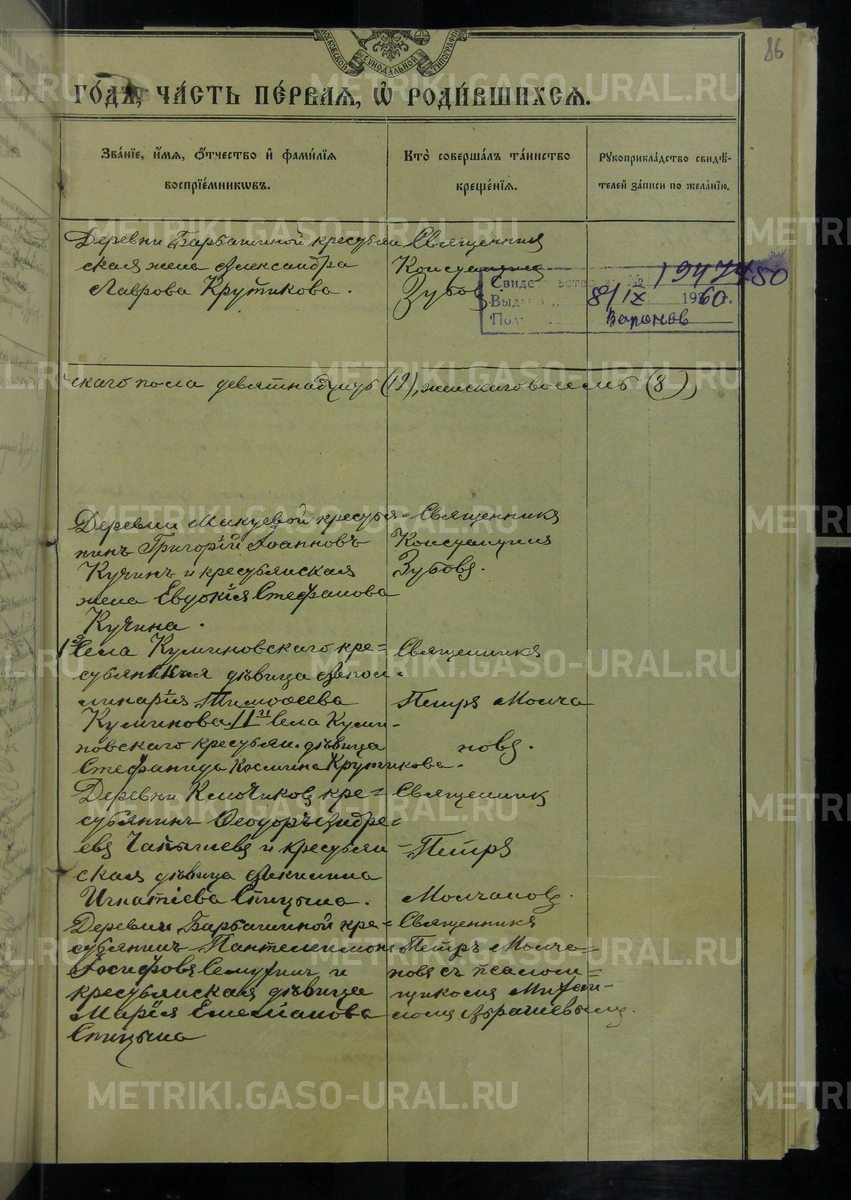 86
МОСКОВСКОЙ СѴНОДАЛЬНОЙ ТИПОГРАФІИ
ГОДЪ, ЧАСТЬ ПЕРВАЯ, Ѡ РОДИВШИХСЯ.
Званіе, имя, отчество и фамилія воспріемниковъ.
Кто совершалъ таинство крещенія.
Рукоприкладство свидѣтелей записи по желанію.
Деревни Барбашиной крестьян
ская жена Александра
Лаврова Крутикова.
Священникъ
Константинъ
Зубовъ
Свидет № 1947480
Выд 8/IX 1960г.
Воронов
скаго пола девятнадцать (19), женскаго восемь (8)
Деревни Микуевой крестья-
нинъ Григорій Іоанновъ
Кучинъ и крестьянская
жена Евдокія Стефанова
Кучина.
Священникъ
Константинъ
Зубовъ.
Села Куминовскаго кре=
стьянская дѣвица Аполи-
линарія Тимоѳеева
Куминова II Села Куми-
новскаго крестьян. дѣвица
Стефанида Космина Крутикова.
Священникъ
Петръ Молча
новъ.
Деревни Ключиковъ кре=
стьянинъ Ѳеодоръ Андре=
евъ и крестьян
ская дѣвица Акилина
Игнатіева Спицына.
Священникъ
Петръ
Молчановъ.
Деревни Барбашиной кре=
стьянинъ Пантелеимонъ
Іосифовъ и
крестьянская дѣвица
Марія Емеліанова
Спицына
Священникъ
Петръ Молча=
новъ съ псалом=
щикомъ Михаи-
ломъ
METRIKI.GASO-URAL.RU